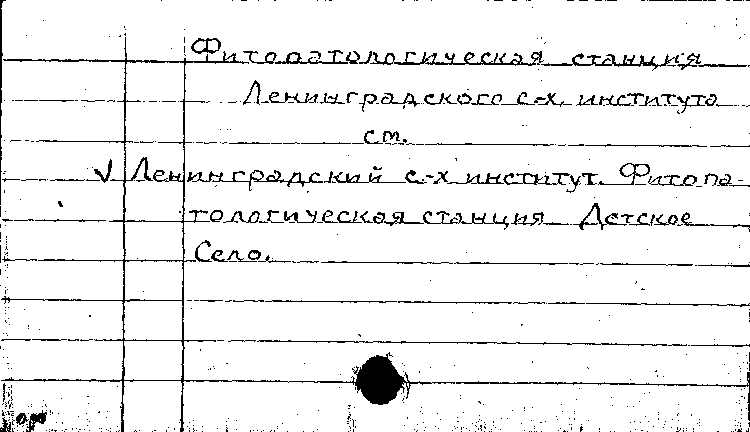 Фитопатологическая станция
Ленинградского с-х. института
см.
√ Ленинградский с.-х институт. Фитопа-
тологическая станция Детское
Село.